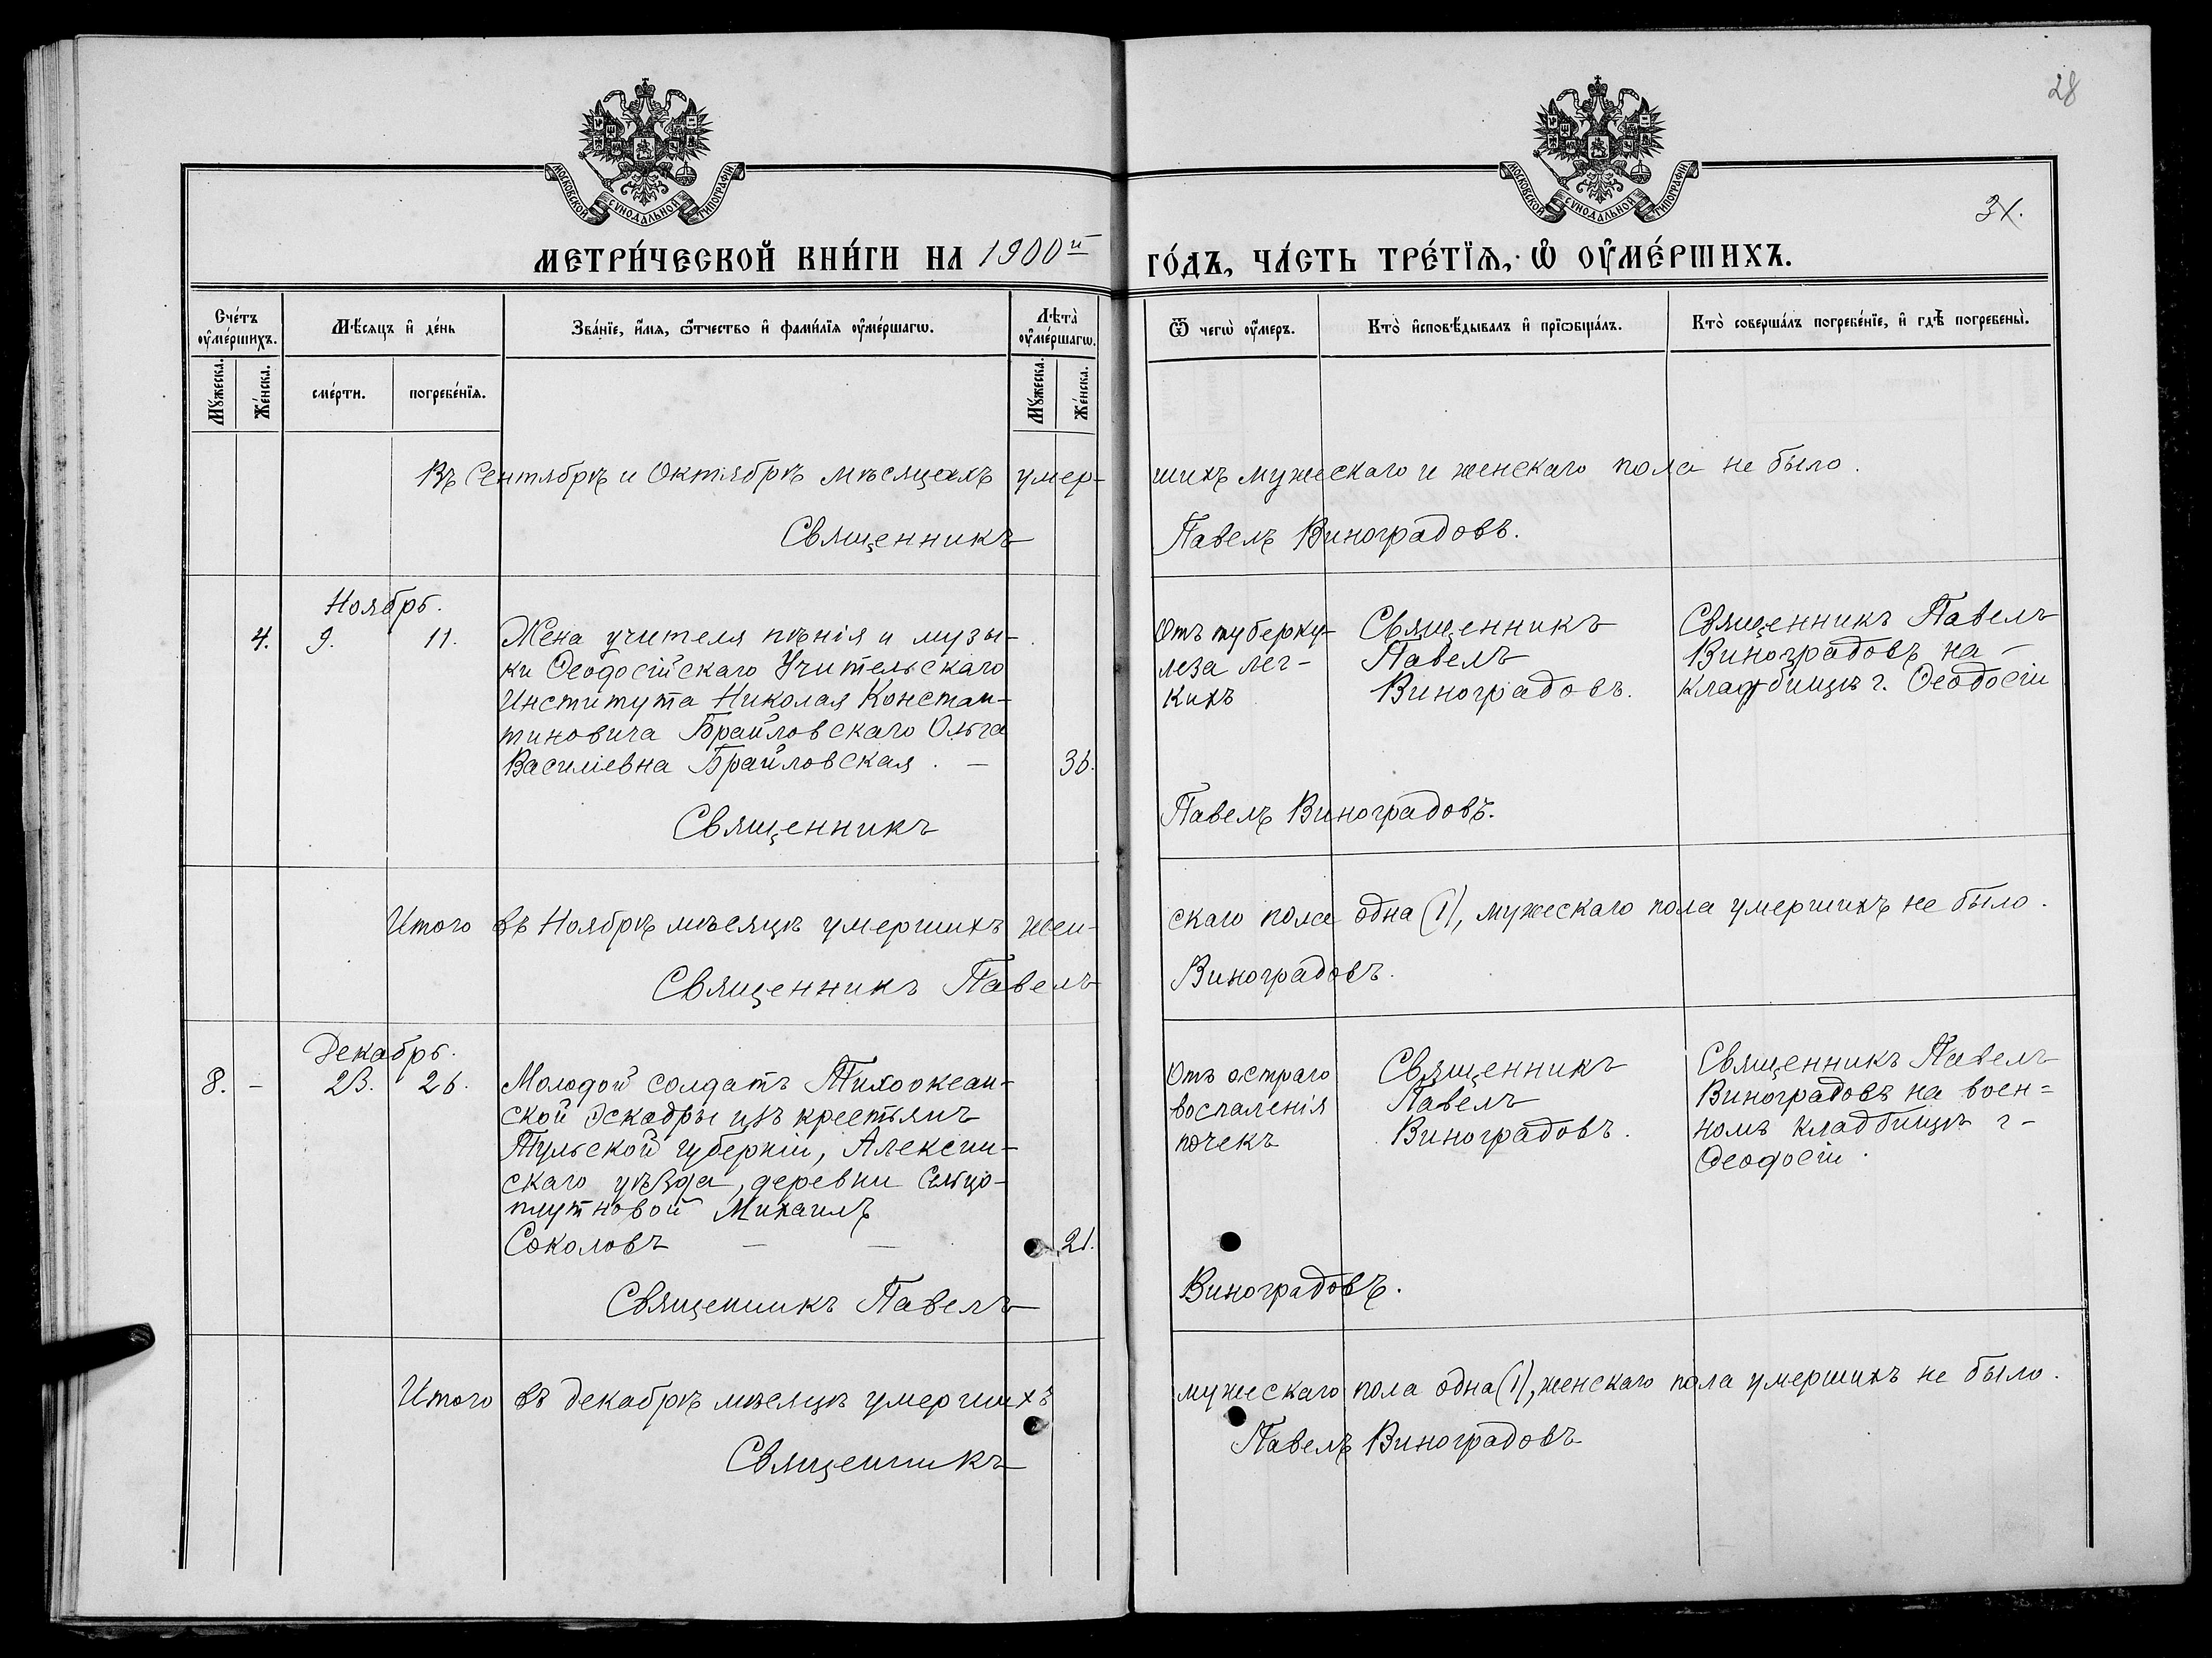 28
МОСКОВСКОЙ СѴНОДАЛЬНОЙ ТИПОГРАФІИ
МОСКОВСКОЙ СѴНОДАЛЬНОЙ ТИПОГРАФІИ
МЕТРИ́ЧЕСКОЙ КНИ́ГИ НА 1900й ГО́ДЪ, ЧА́СТЬ ТРЕ́ТЇѦ, Ѿ ОУ҆МЕ́РШИХЪ.
Сче́тъ оу҆ме́ршихъ.
Мꙋ́жеска.
Же́нска.
Мѣ́сяцъ и҆ де́нь
сме́рти.
погребе́нїѧ.
Зва́нїе, и҆́мѧ, ѻ҆́тчество и҆ фами́лїѧ оу҆ме́ршагѡ.
Лѣ́та̀ оу҆ме́ршагѡ.
Мꙋ́жеска.
Же́нска.
Ѿ чегѡ̀ оу҆́меръ.
Кто̀ и҆сповѣ́дывалъ и҆ прїѡбща́лъ.
Кто̀ соверша́лъ погребе́нїе, и҆ гдѣ̀ погребены̀.
Въ Сентябрѣ и Октябрѣ мѣсяцахъ умер-
шихъ мужескаго и женскаго пола не было.
Священникъ
Павелъ Виноградовъ.
Ноябрь.
4. 9. 11.
Жена учителя пѣнія и музы-
ки Ѳеодосійскаго Учительскаго
Института Николая Констан-
тиновича Брайловскаго Ольга
Василіевна Брайловская. — 36.
Отъ туберку-
леза лег-
кихъ
Священникъ
Павелъ
Виноградовъ.
Священникъ Павелъ
Виноградовъ на
кладбищѣ г. Ѳеодосіи
Священникъ
Павелъ Виноградовъ.
Итого въ Ноябрѣ мѣсяцѣ умершихъ жен-
скаго пола одна (1), мужескаго пола умершихъ не было.
Священникъ Павелъ
Виноградовъ.
Декабрь.
8. – 23. 26.
Молодой солдатъ Тихоокеан-
ской эскадры изъ крестьянъ
Тульской губерніи, Алексин-
скаго уѣзда, деревни Сельцо-
плутновой Михаилъ
Соколовъ — — 21.
Отъ остраго
воспаленія
почекъ
Священникъ
Павелъ
Виноградовъ.
Священникъ Павелъ
Виноградовъ на воен=
номъ кладбищѣ г-
Ѳеодосіи.
Священникъ Павелъ
Виноградовъ.
Итого въ декабрѣ мѣсяцѣ умершихъ
мужескаго пола одна (1), женскаго пола умершихъ не было.
Священникъ
Павелъ Виноградовъ